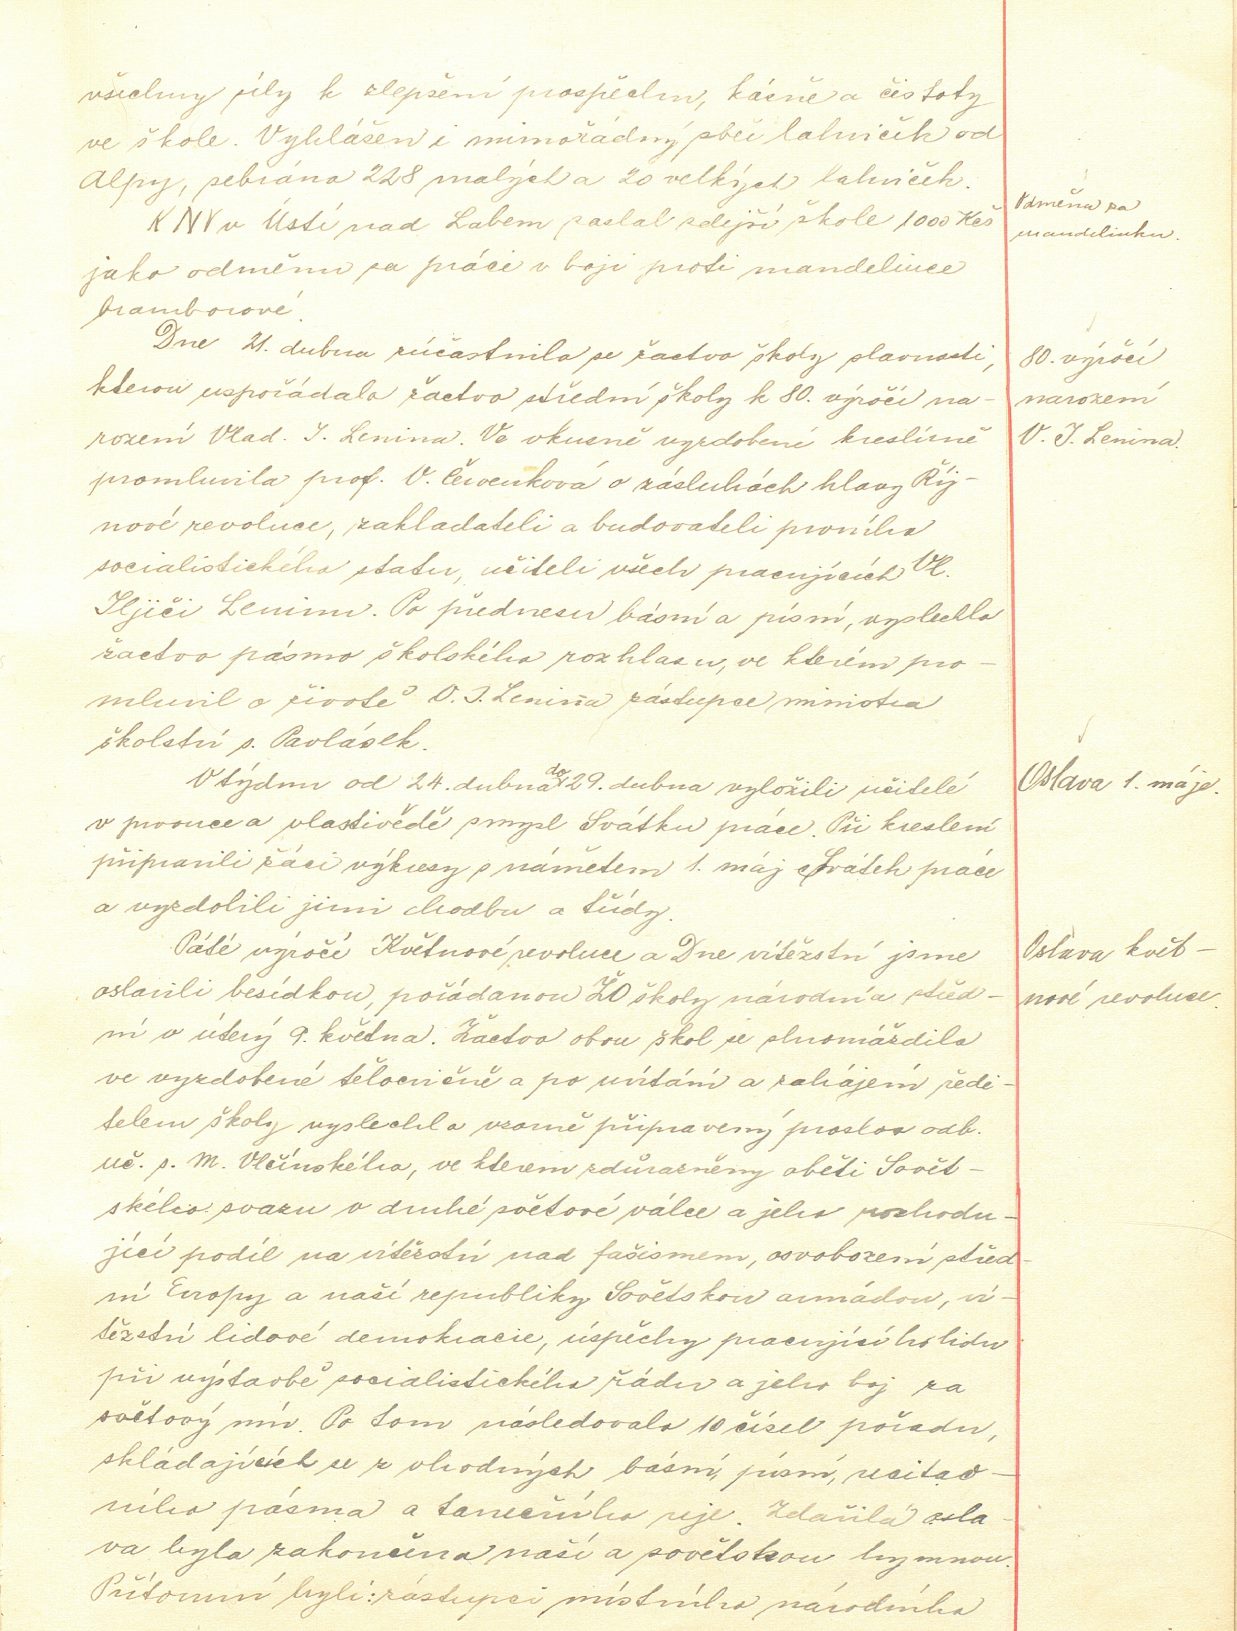 všechny síly k zlepšení prospěchu, kázně a čistoty
ve škole. Vyhlášen i mimořádný sběr lahviček od
Alpy, sebráno 228 malých a 20 velkých lahviček.
KNV v Ústí nad Labem zaslal zdejší škole 1000 Kčs
Odměna za
mandelinku.
jako odměnu za práci v boji proti mandelince
bramborové.
Dne 21. dubna zúčastnilo se žactvo školy slavnosti,
80. výročí
kterou uspořádalo žactvo střední školy k 80. výročí na-
narození
rození Vlad. I. Lenina. Ve vkusně vyzdobené kreslírně
V. I. Lenina.
promluvila prof. V. Červenková o zásluhách hlavy Říj-
nové revoluce, zakladateli a budovateli prvního
socialistického státu, učiteli všech pracujících Vl.
Iljiči Leninu. Po přednesu básní a písní, vyslechlo
žactvo pásmo školského rozhlasu, ve kterém pro-
mluvil o životě V. I. Lenina zástupce ministra
školství s. Pavlásek.
V týdnu od 24. dubna do 29. dubna vyložili učitelé
Oslava 1. máje.
v prvouce a vlastivědě smysl Svátku práce. Při kreslení
připravili žáci výkresy s námětem 1. máj Svátek práce
a vyzdobili jimi chodbu a třídy.
Páté výročí Květnové revoluce a Dne vítězství jsme
Oslava květ-
oslavili besídkou, pořádanou ŽO školy národní a střed-
nové revoluce.
ní v úterý 9. května. Žactvo obou škol se shromáždilo
ve vyzdobené tělocvičně a po uvítání a zahájení ředi-
telem školy vyslechlo vzorně připravený proslov odb.
uč. s. M. Vlčinského, ve kterém zdůrazněny oběti Sovět-
ského svazu v druhé světové válce a jeho rozhodu-
jící podíl na vítězství nad fašismem, osvobození střed-
ní Evropy a naší republiky Sovětskou armádou, ví-
tězství lidové demokracie, úspěchy pracujícího lidu
při výstavbě socialistického řádu a jeho boj za
světový mír. Po tom následovalo 10 čísel pořadu,
skládajících se z vhodných básní, písní, recitač-
ního pásma a tanečního reje. Zdařilá osla-
va byla zakončena naší a sovětskou hymnou.
Přítomni byli: zástupci místního národního